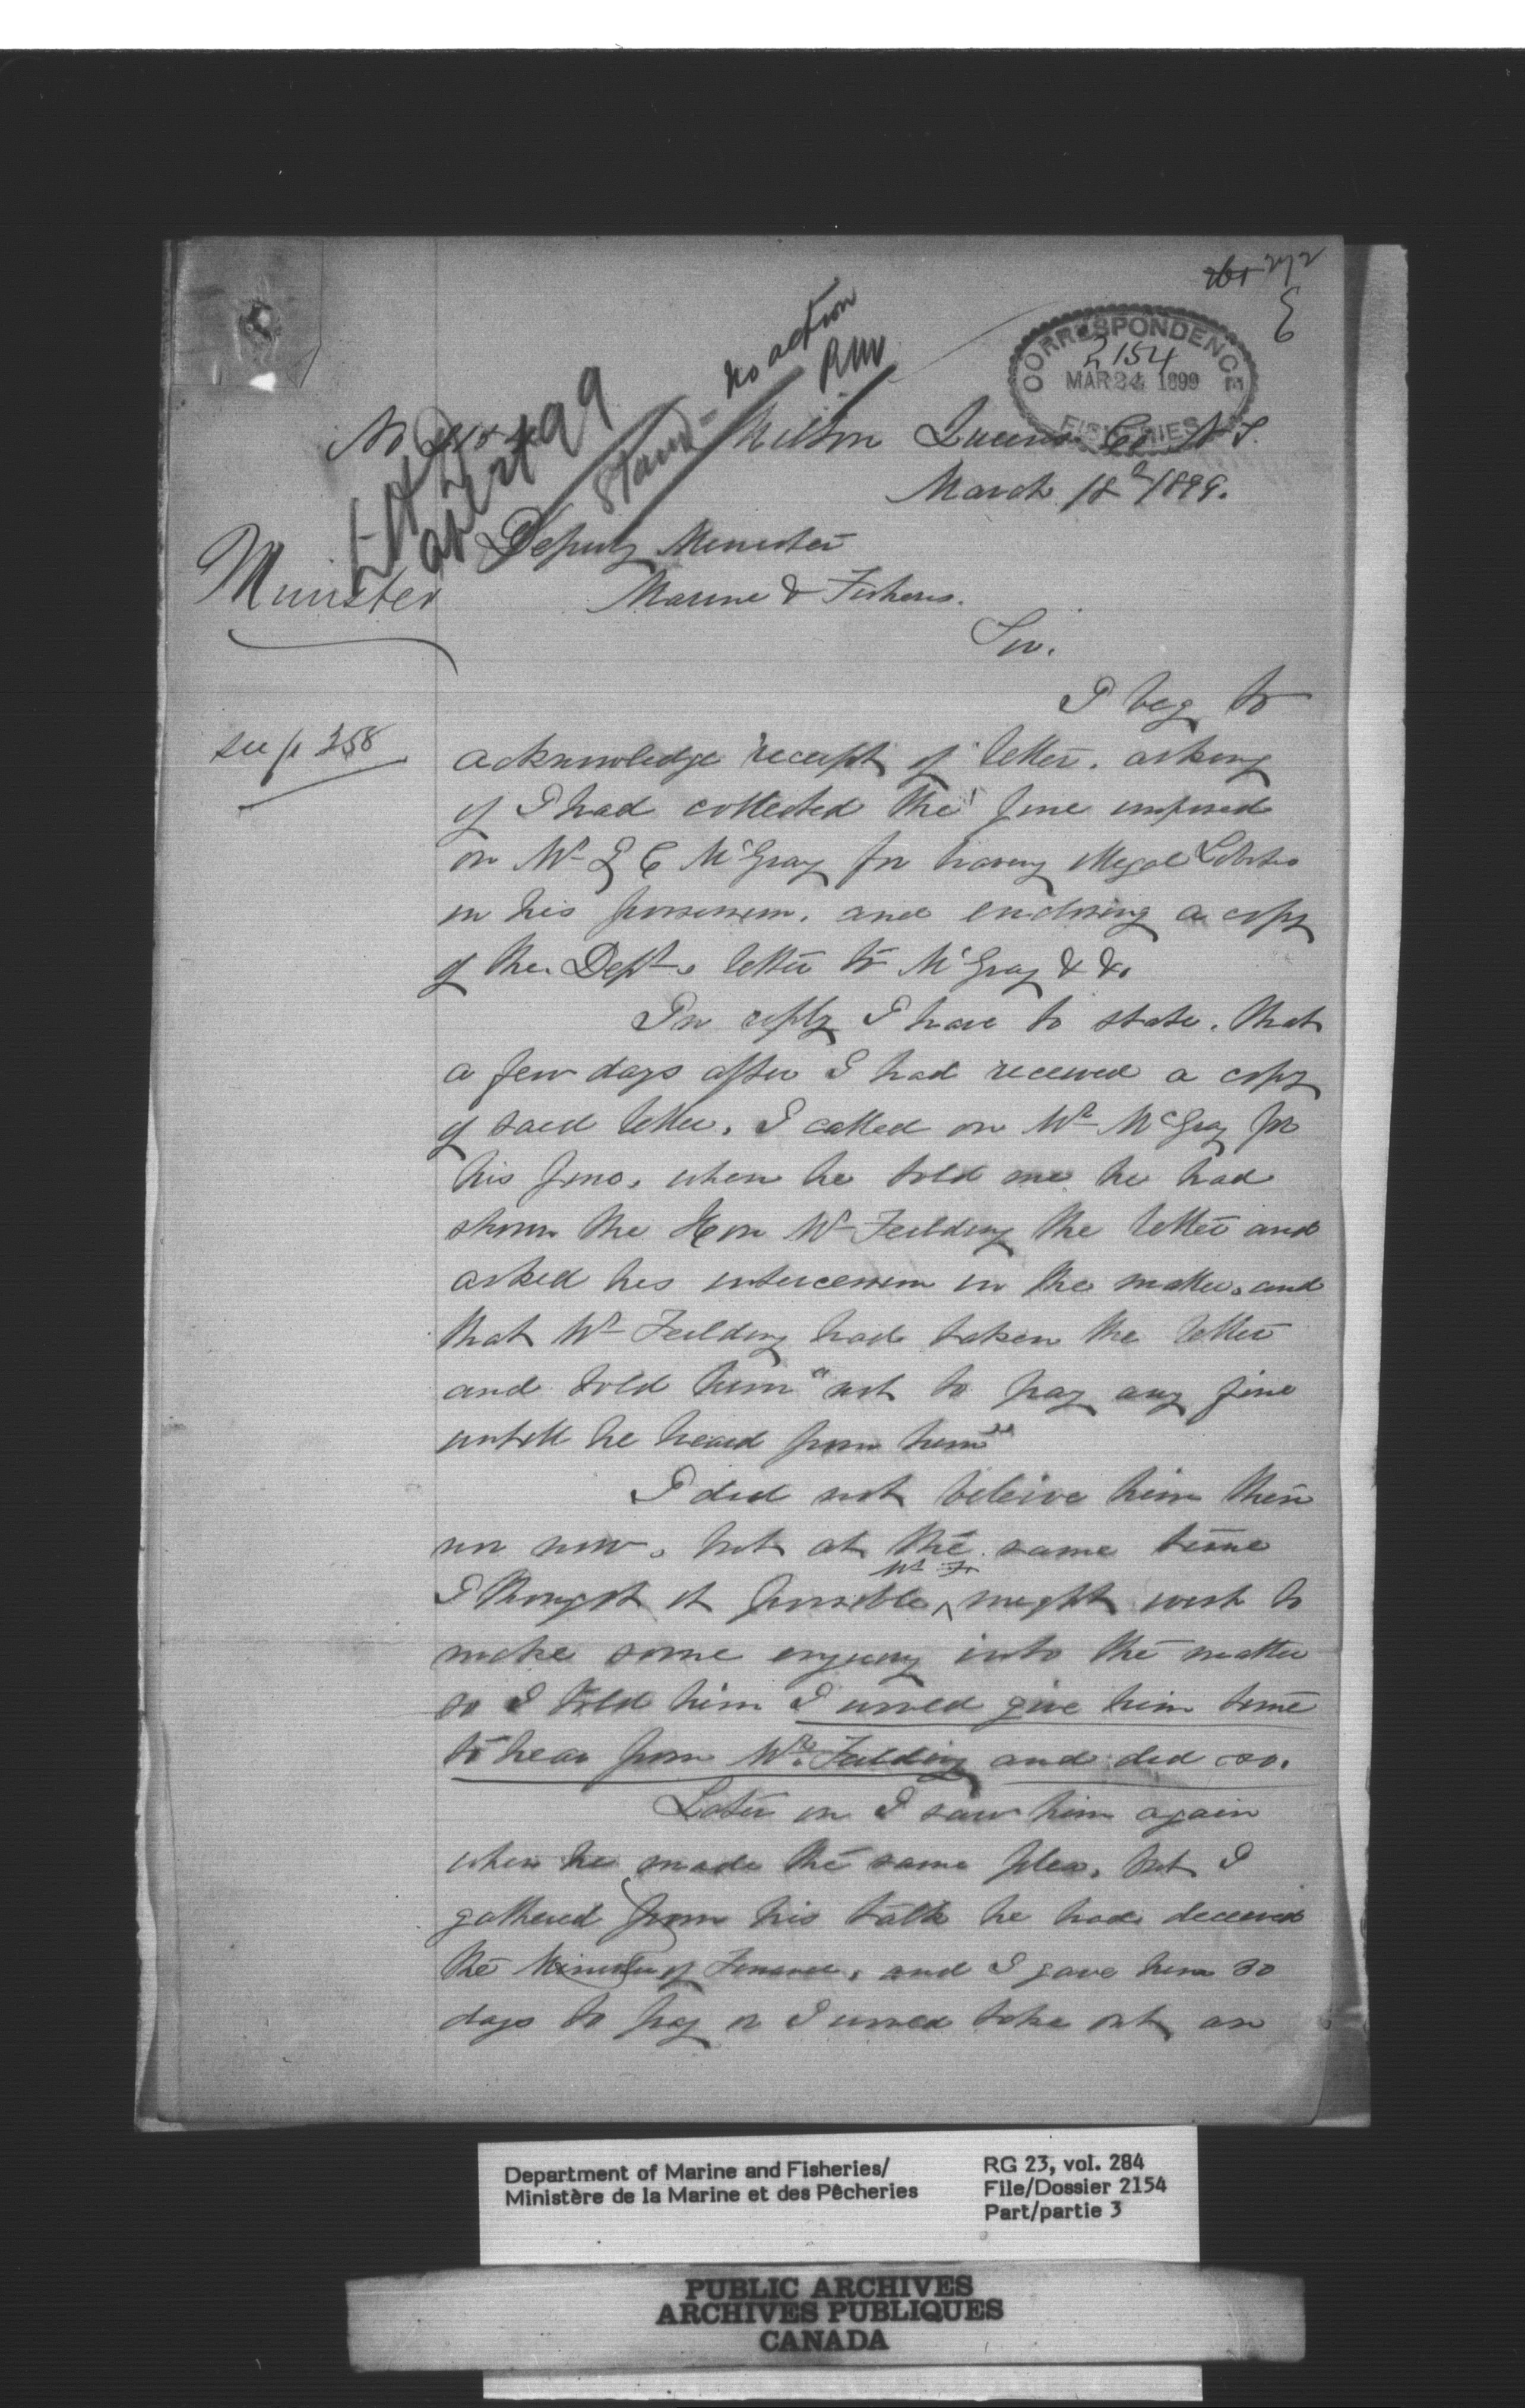 261 272
E
CORRESPONDENCE
2154
MAR 24 1899
FISHERIES
no action
Stand -
No 2154
99
Milton Queens Co N.S.
March 18th 1899.
Deputy Minister
Minister
Marine & Fisheries.
Sir.
I beg to
see p 258
acknowledge receipt of letter. asking
if I had collected the fine imposed
on Mr E C McGray for having illegal Lobsters
in his possession. and enclosing a copy
of the Dept.s letter to McGray & &c.
In reply I have to state. that
a few days after I had received a copy
of said letter. I called on Mr McGray for
his fine. when he told me he had
shown the Hon Mr Feilding the letter and
asked his intercession in the matter. and
that Mr Feilding had taken the letter
and told him "not to pay any fine
untill he heard from him"
I did not beleive him then
nor now. but at the same time
I thought it possible Mr F. might wish to
make some enquiry into the matter
so I told him I would give him time
to hear from Mr. Feilding and did so.
Later on I saw him again
when he made the same plea. but I
gathered from his talk he had deceived
the Minister of Finance. and I gave him 30
days to pay or I would take out an
Department of Marine and Fisheries/
Ministère de la Marine et des Pêcheries
RG 23, vol. 284
File/Dossier 2154
Part/partie 3
PUBLIC ARCHIVES
ARCHIVES PUBLIQUES
CANADA